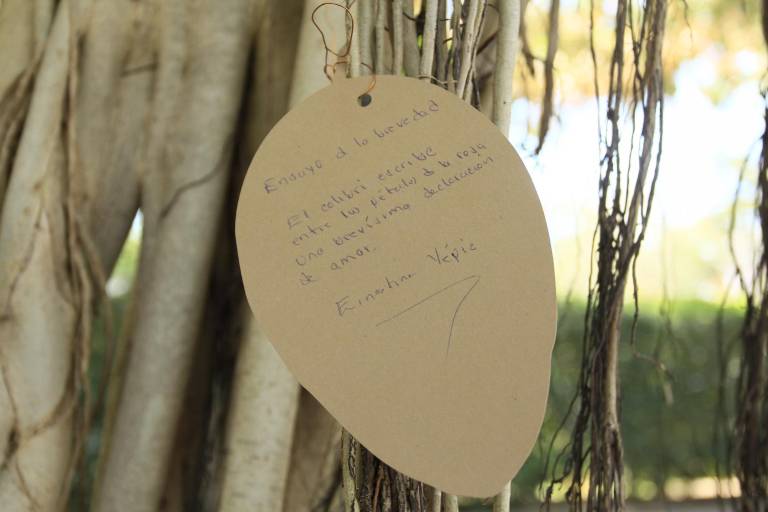 Ensayo d la brevedad
El colibrí escribe
entre los pétalos d la rosa
una brevísima declaración
de amor.
Yépiz